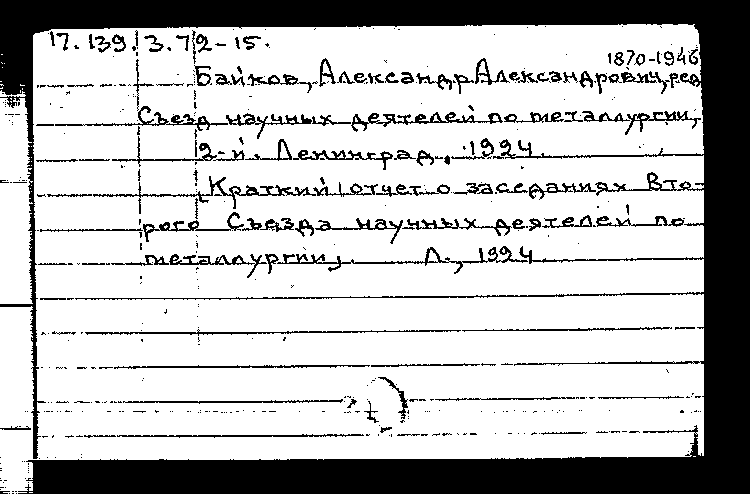 17.139.3.72-15.
1870-1946
Байков, Александр Александрович, ред.
Съезд научных деятелей по металлургии,
2-й. Ленинград, 1924.
Краткий отчет о заседаниях Вто-
рого Съезда научных деятелей по
металлургии,. Л., 1924.